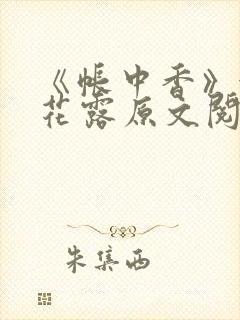 《帐中香》
花露原文阅
朱集西